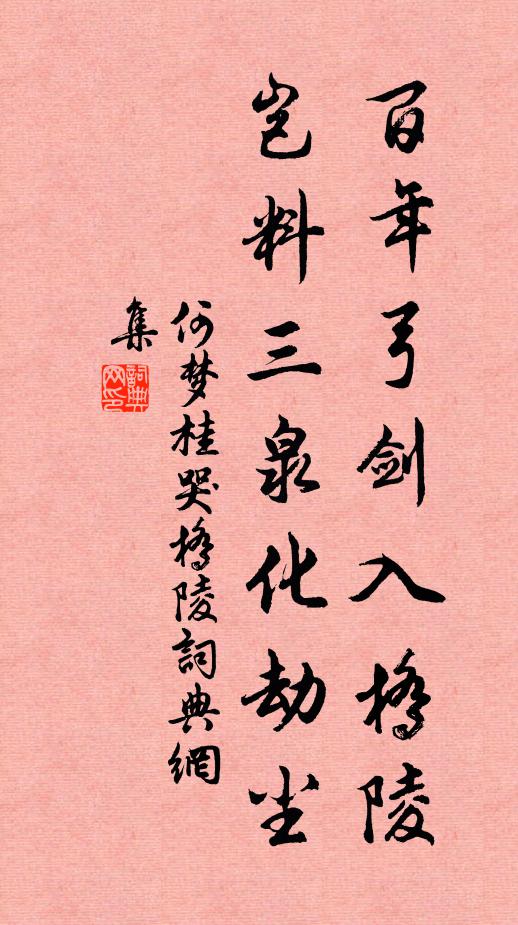 百年弓剑入桥陵
岂料三泉化劫尘
何梦桂哭桥陵詞典網
集
詞典网印